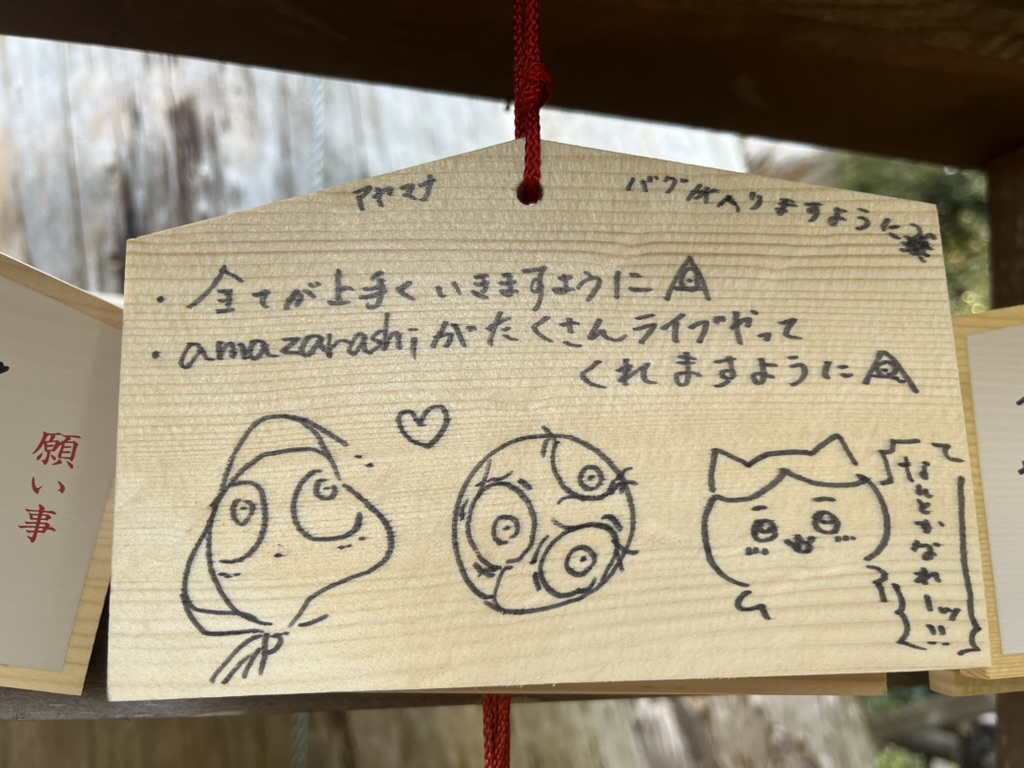 アヤマナ
バグが入りますように
・全てが上手くいきますように
・amazarashiがたくさんライブやって
くれますように
なんとかなれーッ!!
て
願い事